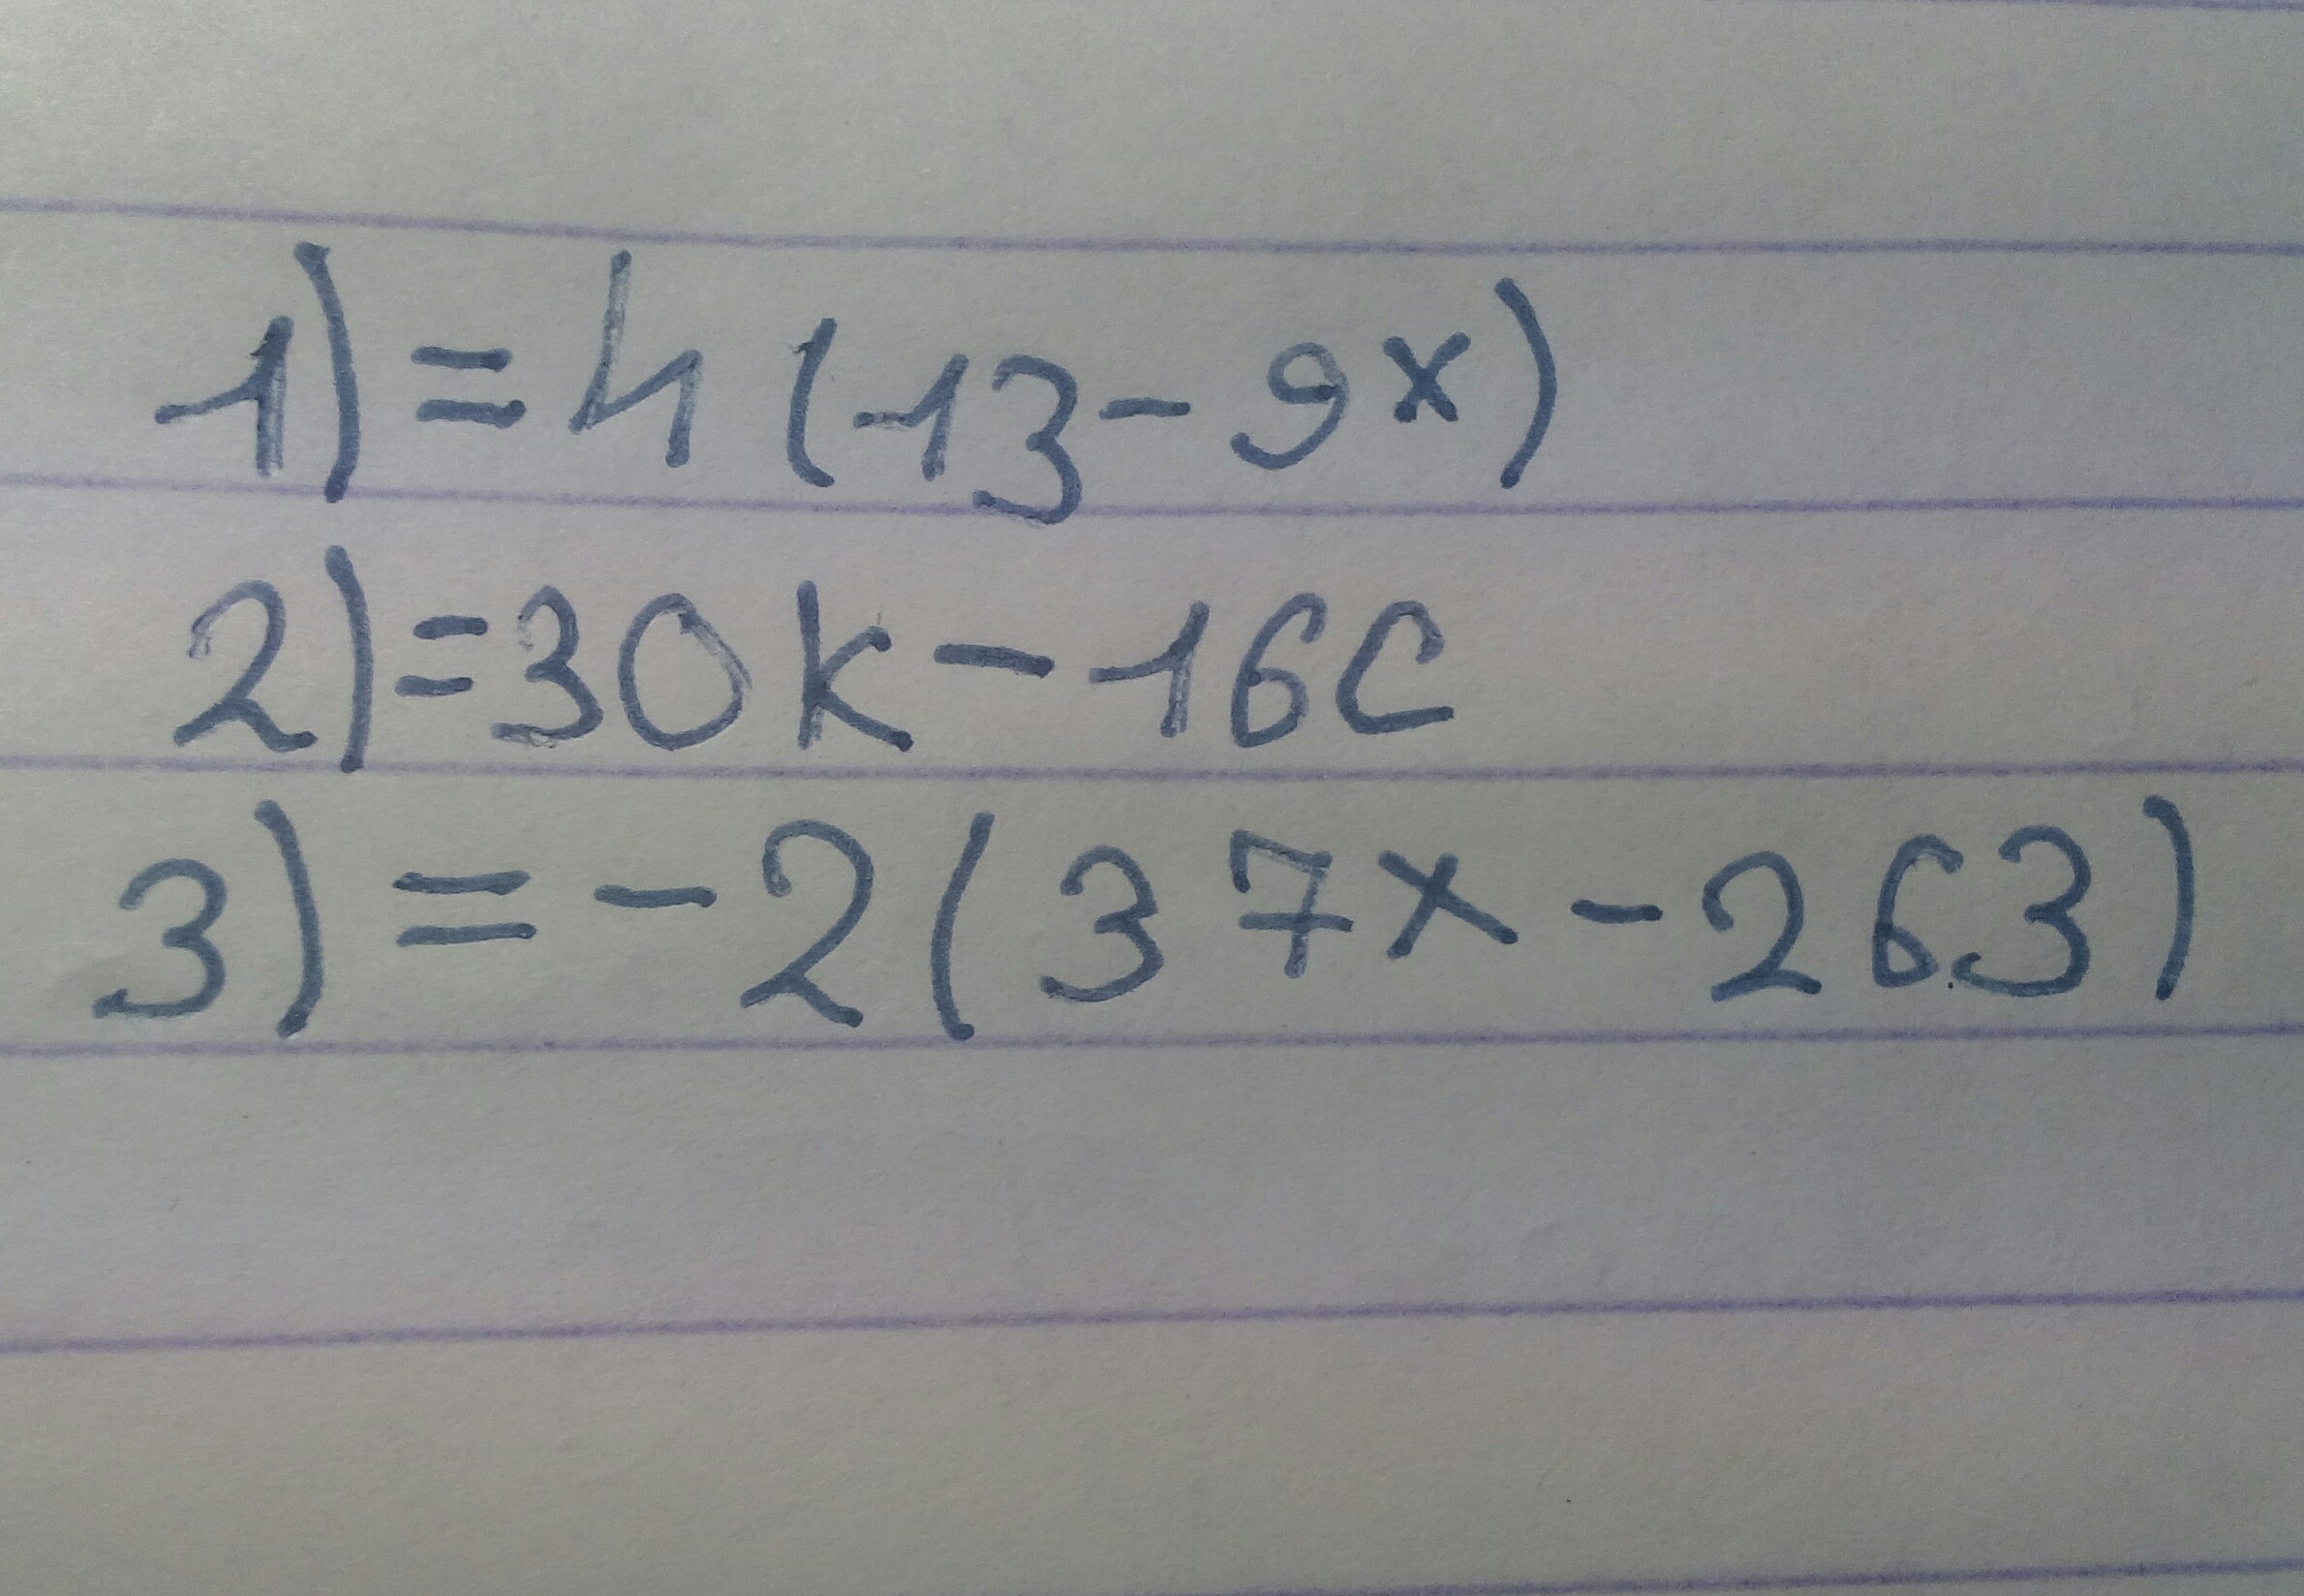 1) = 4 (13 - 9x)
2) = 30k - 16c
3) = -2 (37x - 263)